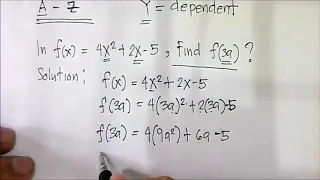 A - Z Y = dependent
In f(x) = 4x² + 2x - 5, Find f(3a) ?
Solution: f(x) = 4x² + 2x - 5
f(3a) = 4(3a)² + 2(3a) - 5
f(3a) = 4(9a²) + 6a - 5